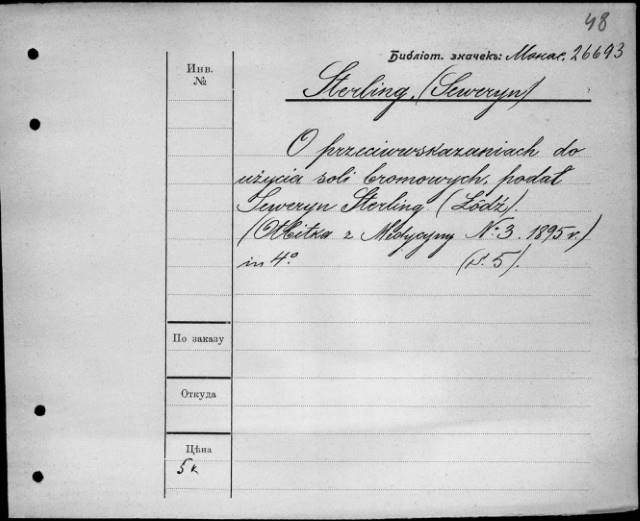 48
Библіот. значекъ: Монас. 26693
Инв.
№
Sterling, (Seweryn)
O przeciwwskazaniach do
użycia soli bromowych, podał
Seweryn Sterling (Łódź).
(Odbitka z Medycyny № 3. 1895 r.)
in 4º (s. 5).
По заказу
Откуда
Цѣна
5 к